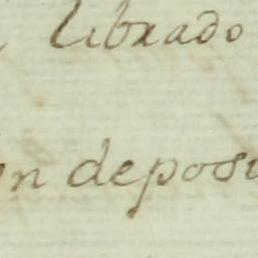 librado
deposi